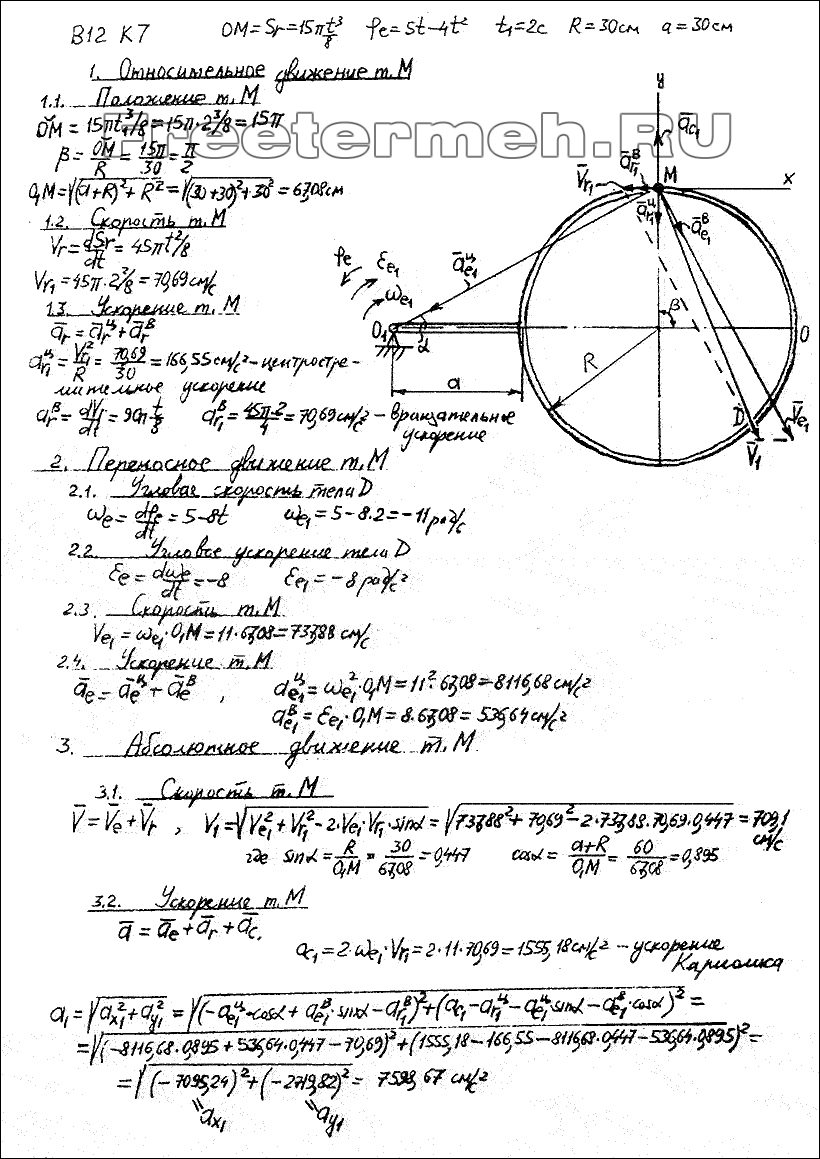 В12 К7 OM = Sr = 15πt³/8 φe = 5t-4t² t₁=2c R=30см a=30см
1. Относительное движение т. М
1.1. Положение т. М
Freetermeh.RU
OM = 15πt₁³/8 = 15π·2³/8 = 15π
β = OM/R = 15π/30 = π/2
O₁M = √((a+R)²+R²) = √((30+30)²+30²) = 67,08 см
1.2. Скорость т. М
Vr = dSr/dt = 45πt²/8
Vr₁ = 45π·2²/8 = 70,69 см/с
1.3. Ускорение т. М
ār = ārᶭ + ārᴮ
ar₁ц = Vr₁²/R = 70,69²/30 = 166,55 см/с² - центростре-
мительное ускорение
arв = dVr/dt = 90π t/8 ar₁в = 45π·2/4 = 70,69 см/с² - вращательное
ускорение
y
āc₁
ār₁в
V̄r₁
M
x
ār₁ц
āe₁в
φe
εe₁
āe₁ц
ωe₁
β
O₁
α
O
R
a
D
V̄e₁
V̄₁
2. Переносное движение т. М
2.1. Угловая скорость тела D
ωe = dφe/dt = 5-8t ωe₁ = 5-8·2 = -11 рад/с
2.2. Угловое ускорение тела D
εe = dωe/dt = -8 εe₁ = -8 рад/с²
2.3. Скорость т. М
Ve₁ = ωe₁·O₁M = 11·67,08 = 737,88 см/с
2.4. Ускорение т. М
āe = āeц + āeв , ae₁ц = ωe₁²·O₁M = 11²·67,08 = 8116,68 см/с²
ae₁в = εe₁·O₁M = 8·67,08 = 536,64 см/с²
3. Абсолютное движение т. М
3.1. Скорость т. М
V̄ = V̄e + V̄r , V₁ = √(Ve₁²+Vr₁²-2·Ve₁·Vr₁·sinα) = √(737,88²+70,69²-2·737,88·70,69·0,447) = 709,1 см/с
где sinα = R/O₁M = 30/67,08 = 0,447 cosα = (a+R)/O₁M = 60/67,08 = 0,895
3.2. Ускорение т. М
ā = āe + ār + āc,
ac₁ = 2·ωe₁·Vr₁ = 2·11·70,69 = 1555,18 см/с² - ускорение
Кариолиса
a₁ = √(ax₁²+ay₁²) = √((-ae₁ц·cosα+ae₁в·sinα-ar₁в)²+(ac₁-ar₁ц-ae₁ц·sinα-ae₁в·cosα)²) =
= √((-8116,68·0,895+536,64·0,447-70,69)²+(1555,18-166,55-8116,68·0,447-536,64·0,895)²) =
= √((-7095,24)²+(-2719,82)²) = 7598,67 см/с²
= ax₁ = ay₁